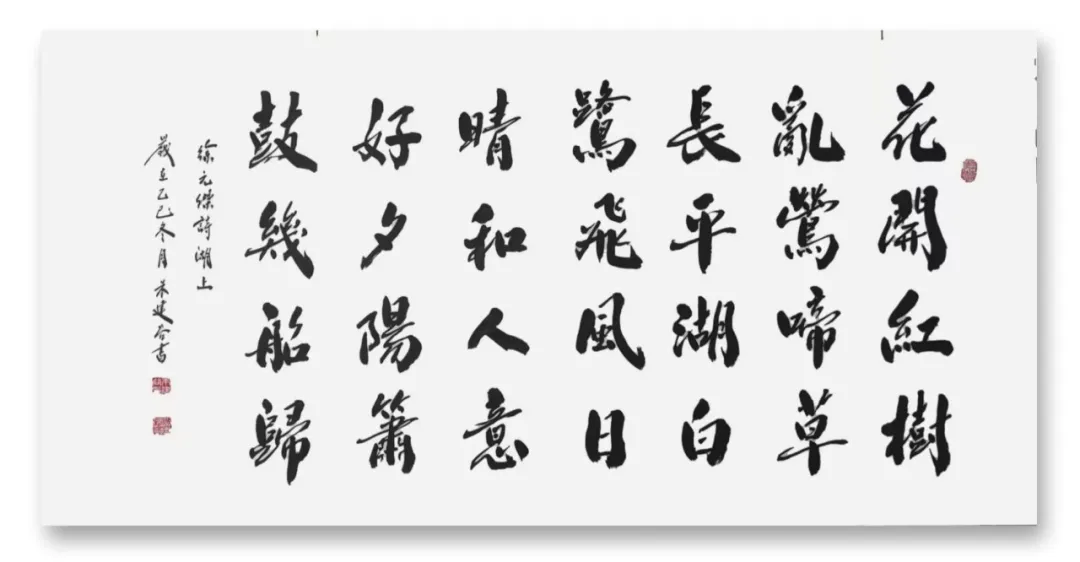 花開紅樹
亂鶯啼草
長平湖白
鷺飛風日
晴和人意
好夕陽簫
鼓幾船歸
徐元傑詩湖上
歲在乙巳冬月米建谷書